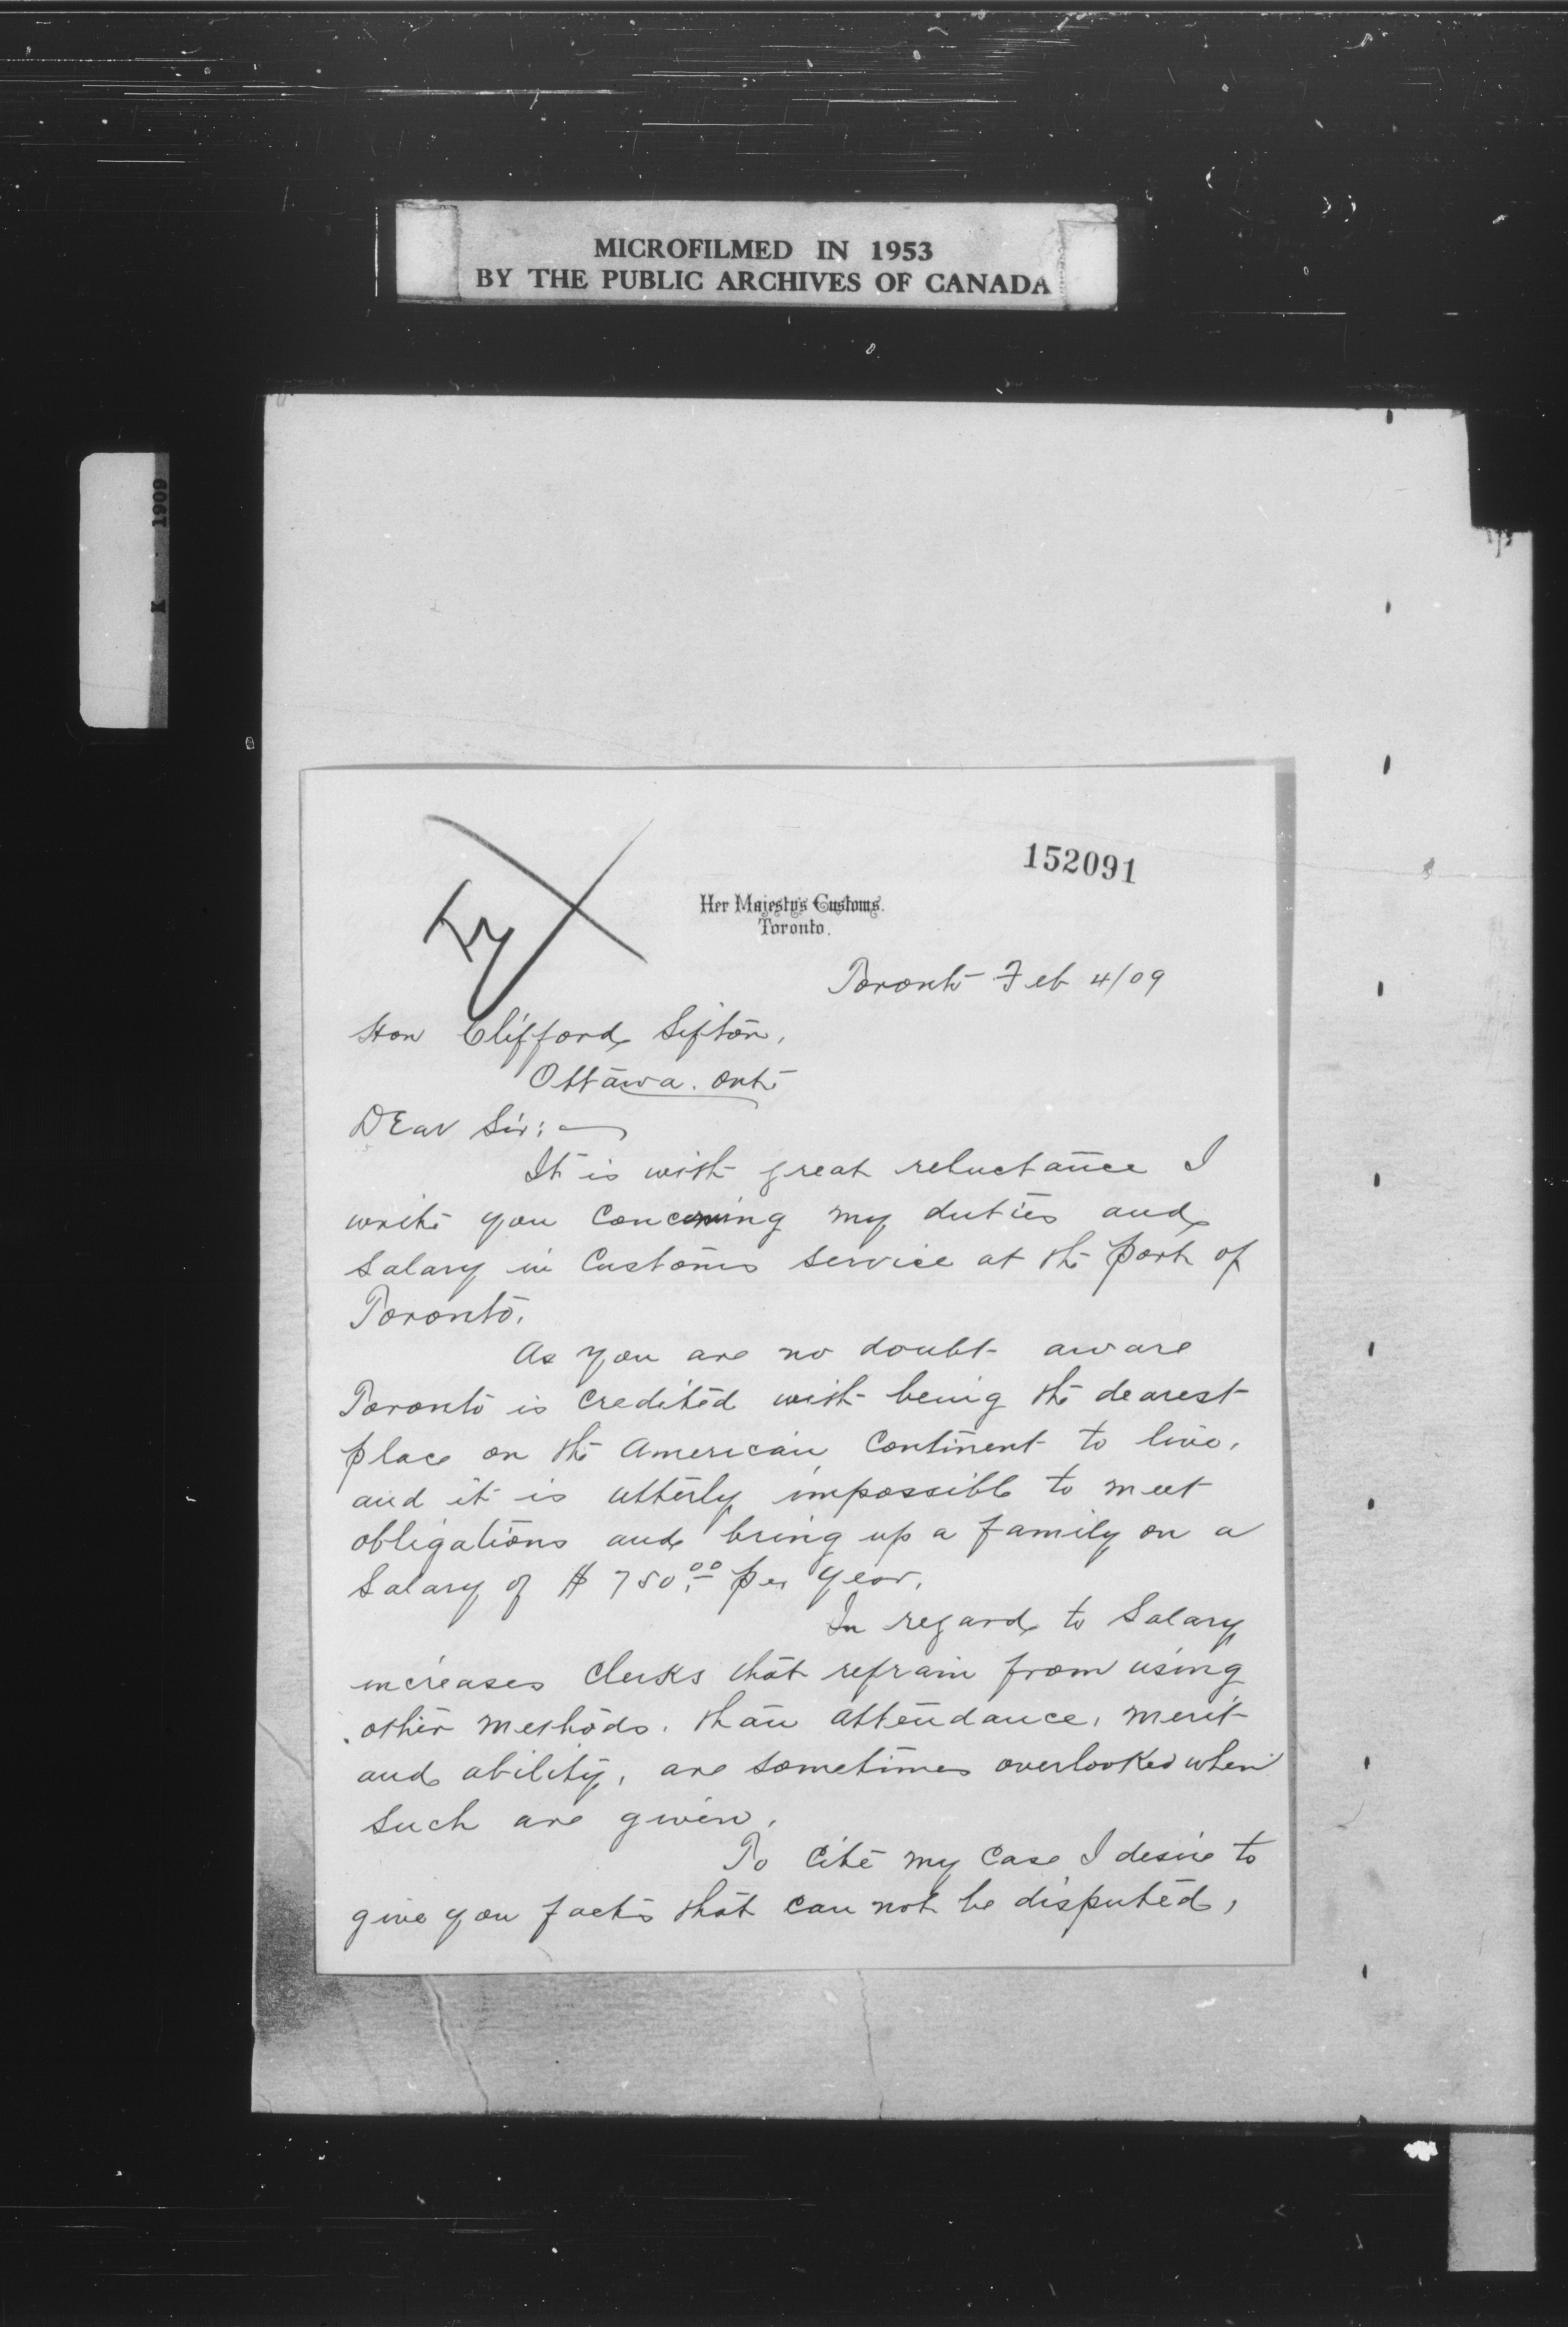 MICROFILMED IN 1953
BY THE PUBLIC ARCHIVES OF CANADA
K 1909
152091
Her Majesty's Customs.
Toronto.
Toronto Feb 4/09
Hon Clifford Sifton,
Ottawa. Ont
Dear Sir:
It is with great reluctance I
write you concerning my duties and
Salary in Customs service at the port of
Toronto.
As you are no doubt aware
Toronto is credited with being the dearest
place on the American Continent to live,
and it is utterly impossible to meet
obligations and bring up a family on a
Salary of $750.00 per year.
In regard to Salary
increases clerks that refrain from using
other methods, than attendance, merit
and ability, are sometimes overlooked when
such are given.
To cite my case I desire to
give you facts that can not be disputed,